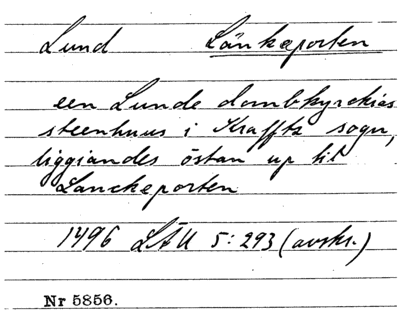 Lund Länkeporten
een Lunde dombkyrckies
steenhuus i Kraffts sogn,
liggiandes östan up til
Lanckeporten
1496 LÄU 5:293 (avskr.)
Nr 5856.